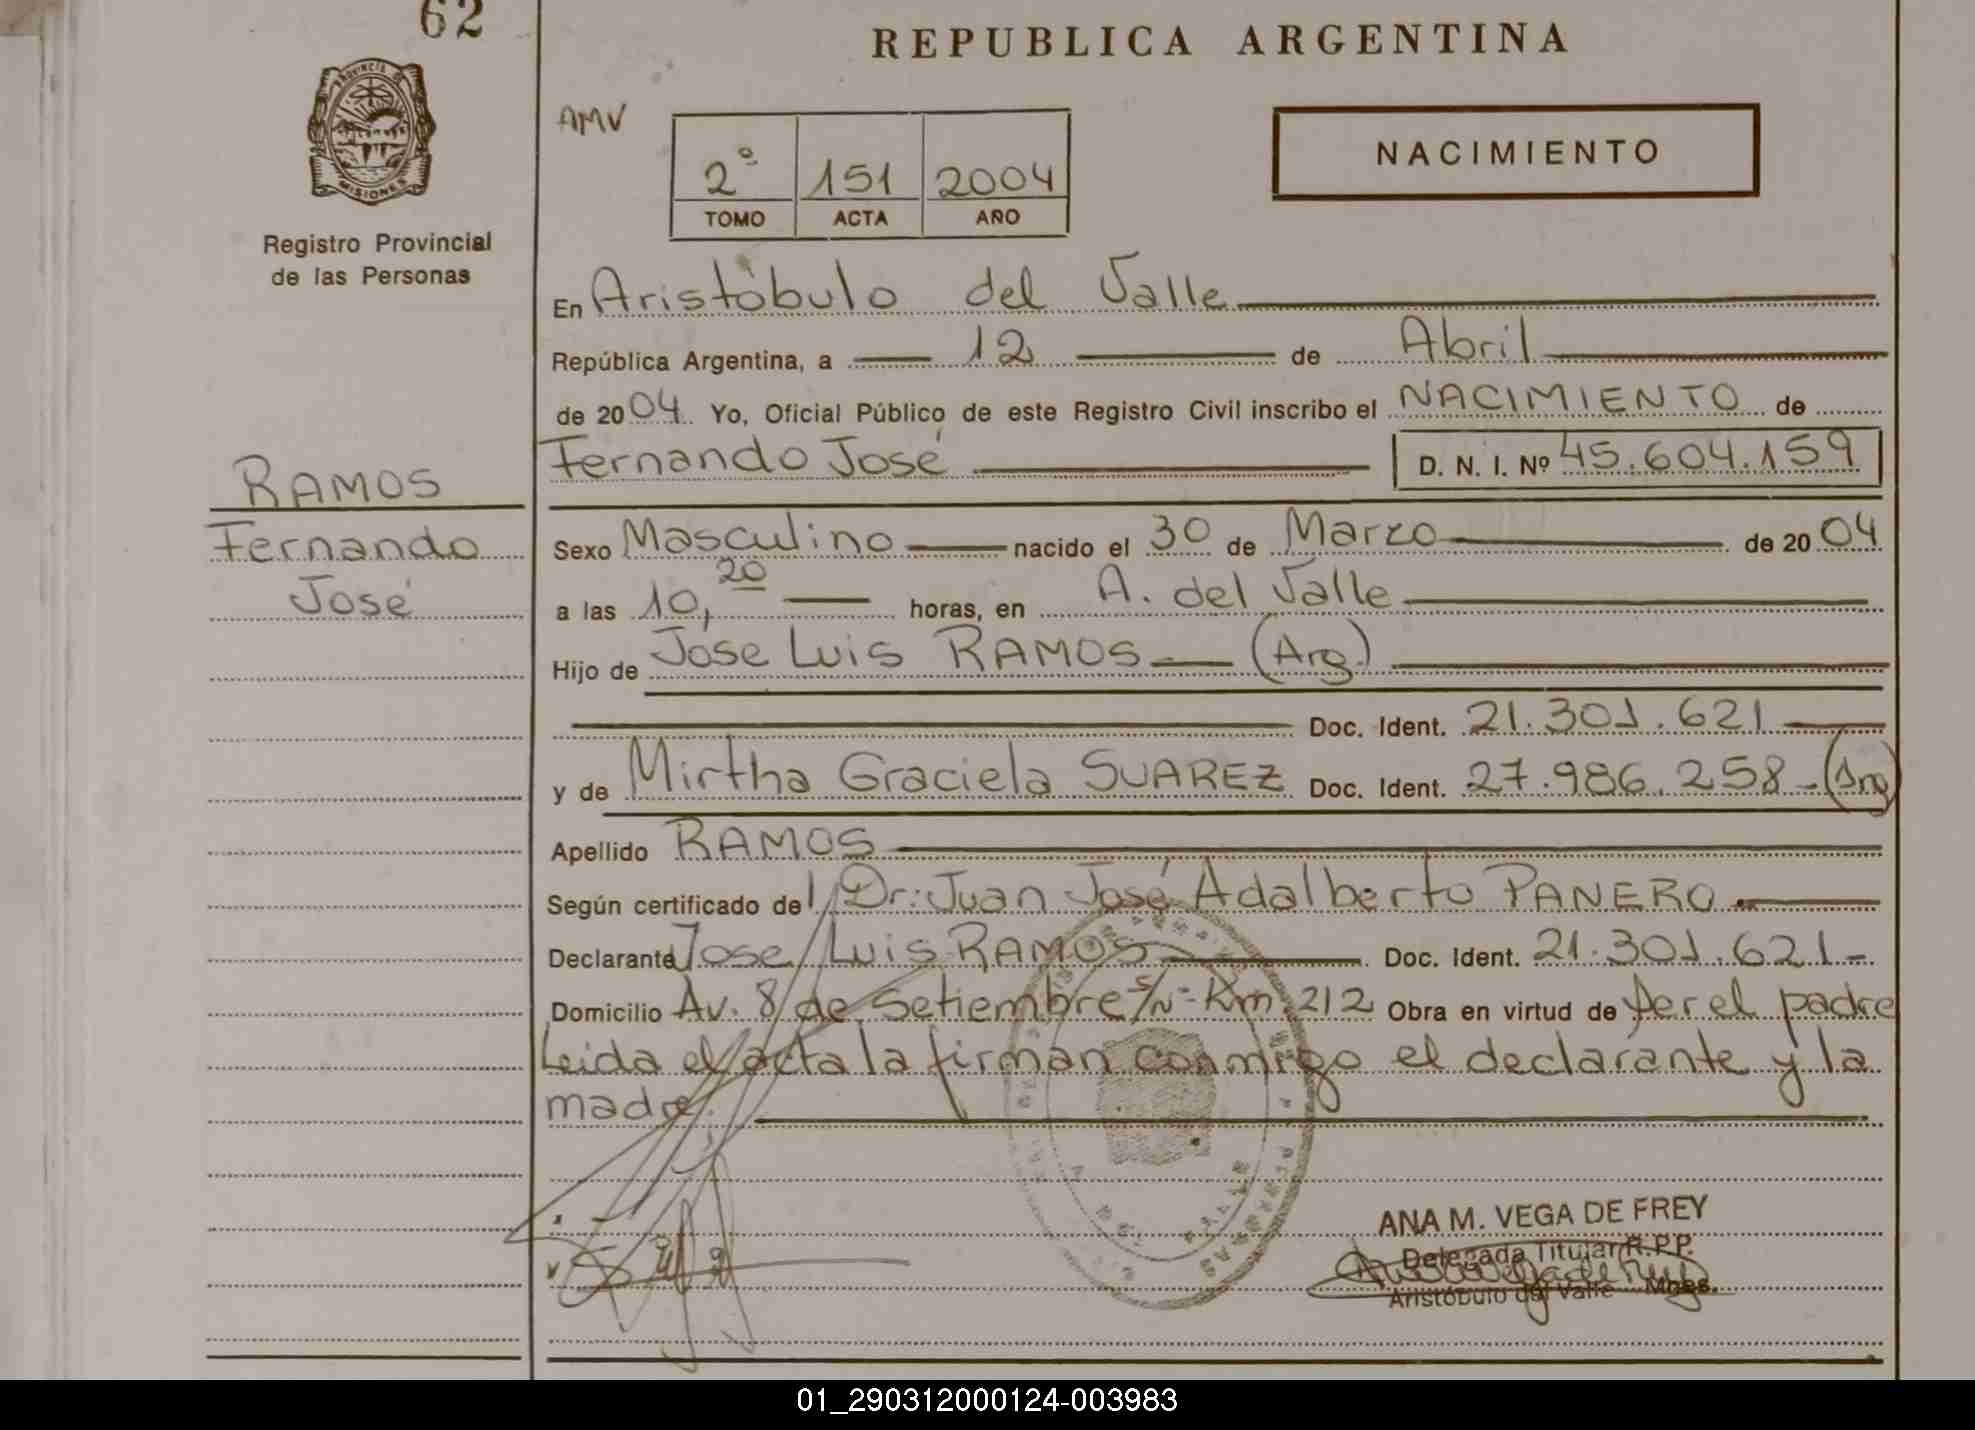 62
REPUBLICA ARGENTINA
PROVINCIA DE
MISIONES
Registro Provincial
de las Personas
AMV
2º 151 2004
TOMO ACTA AÑO
NACIMIENTO
En Aristóbulo del Valle
República Argentina, a 12 de Abril
de 2004 Yo, Oficial Público de este Registro Civil inscribo el NACIMIENTO de
Fernando José D. N. I. Nº 45.604.159
RAMOS
Fernando
José
Sexo Masculino nacido el 30 de Marzo de 2004
a las 10,20 horas, en A. del Valle
Hijo de José Luis RAMOS (Arg.)
Doc. Ident. 21.301.621
y de Mirtha Graciela SUAREZ Doc. Ident. 27.986.258 - (Arg)
Apellido RAMOS
Según certificado del Dr: Juan José Adalberto PANERO
Declarante Jose Luis RAMOS Doc. Ident. 21.301.621-
Domicilio Av. 8 de Setiembre S/Nº- Km 212 Obra en virtud de ser el padre
Leida el acta la firman conmigo el declarante y la
madre.
ANA M. VEGA DE FREY
Delegada Titular R.P.P.
Aristóbulo del Valle Mnes.
01_290312000124-003983